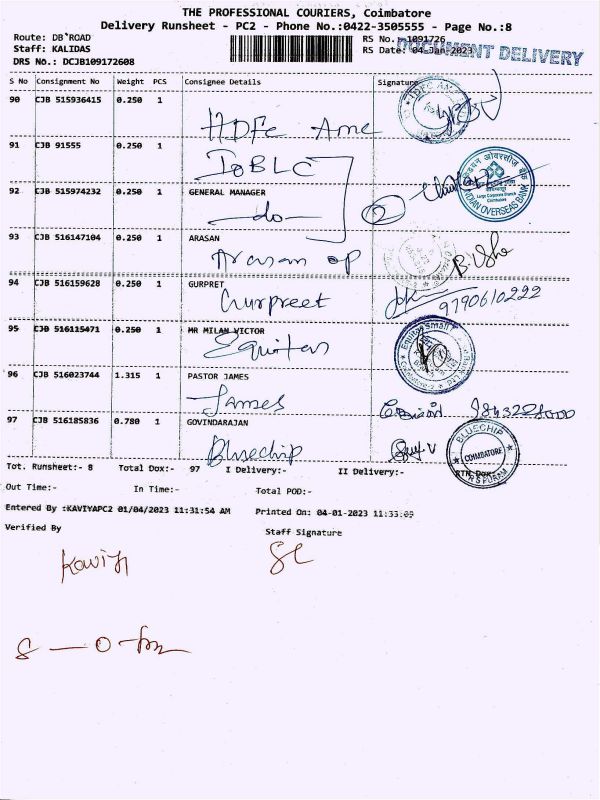 THE PROFESSIONAL COURIERS, Coimbatore
Delivery Runsheet - PC2 - Phone No.:0422-3505555 - Page No.:8
Route: DB`ROAD
RS No. -1091726
Staff: KALIDAS
RS Date: 04-Jan-2023
DOCUMENT DELIVERY
DRS No.: DCJB109172608
S No Consignment No Weight PCS Consignee Details Signature
90 CJB 515936415 0.250 1
HDFC Amc
91 CJB 91555 0.250 1
IOBLC
92 CJB 515974232 0.250 1 GENERAL MANAGER
-do- 2
INDIAN OVERSEAS BANK
93 CJB 516147104 0.250 1 ARASAN
Arasan op
94 CJB 516159628 0.250 1 GURPRET
Gurpreet 9790610222
95 CJB 516115471 0.250 1 MR MILAN VICTOR
Equitas
96 CJB 516023744 1.315 1 PASTOR JAMES
James
97 CJB 516185836 0.780 1 GOVINDARAJAN
Bluechip
BLUECHIP
COIMBATORE
R S PURAM
Tot. Runsheet:- 8 Total Dox:- 97 I Delivery:- II Delivery:- RTN Dox:-
Out Time:- In Time:- Total POD:-
Entered By :KAVIYAPC2 01/04/2023 11:31:54 AM Printed On: 04-01-2023 11:33:09
Verified By Staff Signature